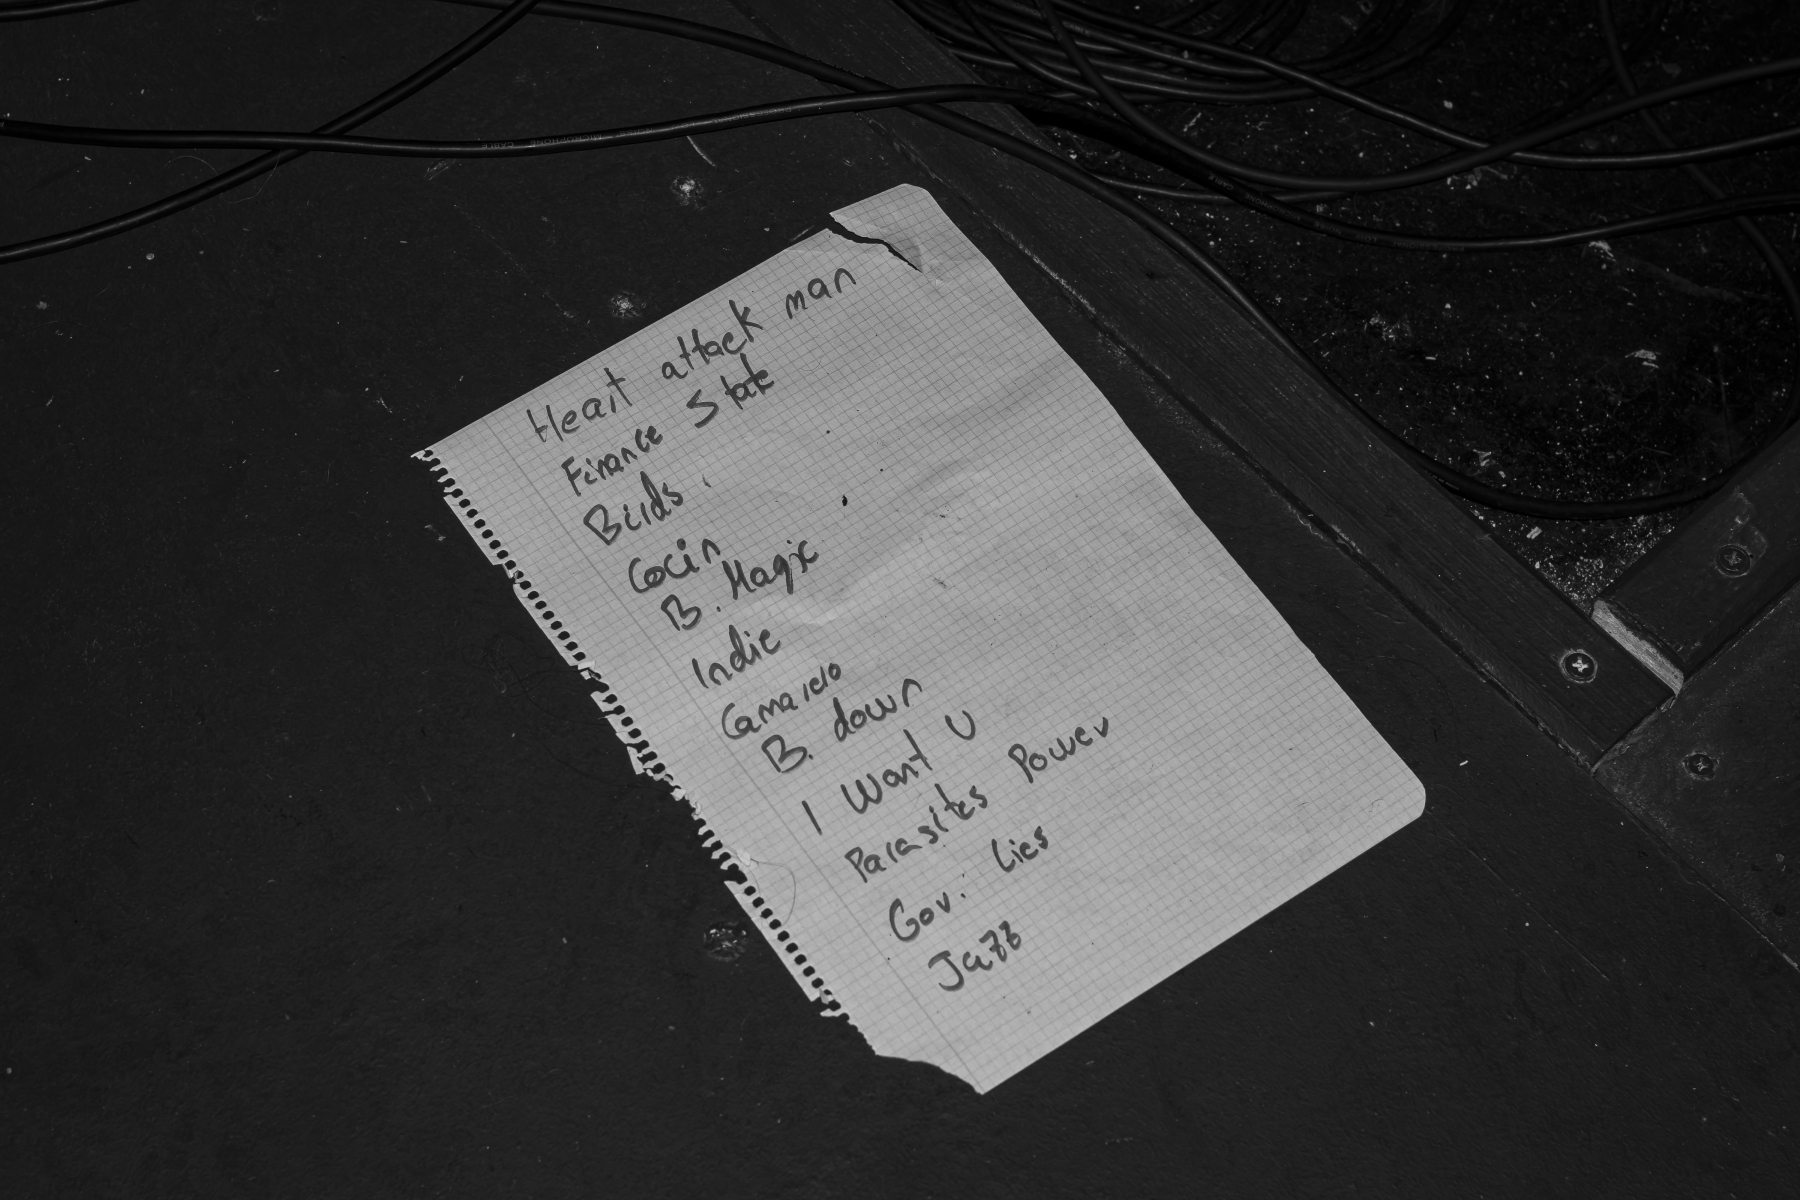 MICROPHONE CABLE
Heart attack man
Finance State
Birds
Cocin
B. Magic
Indie
Camarero
B. down
I Want U
Parasites Power
Gov. Lies
Jazz